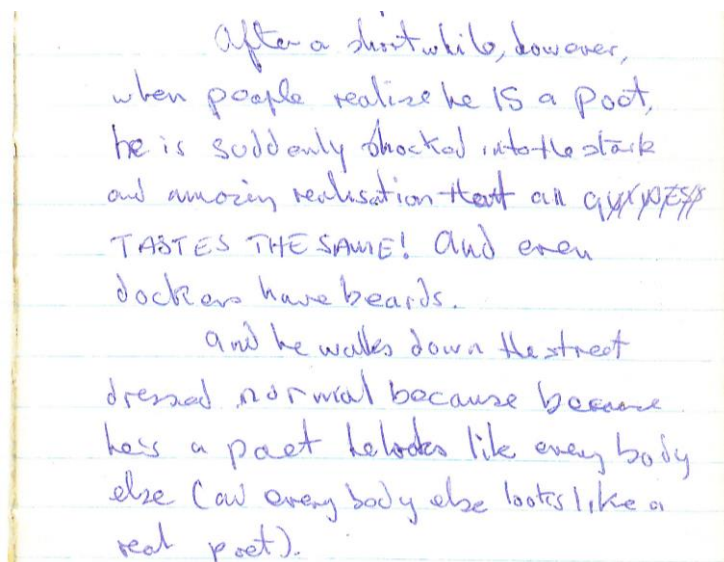 After a short while, however,
when people realize he IS a poet,
he is suddenly shocked into the stark
and amazing realisation that all
TASTES THE SAME! And even
dockers have beards.
And he walks down the street
dressed normal because because
he's a poet he looks like every body
else (and every body else looks like a
real poet).